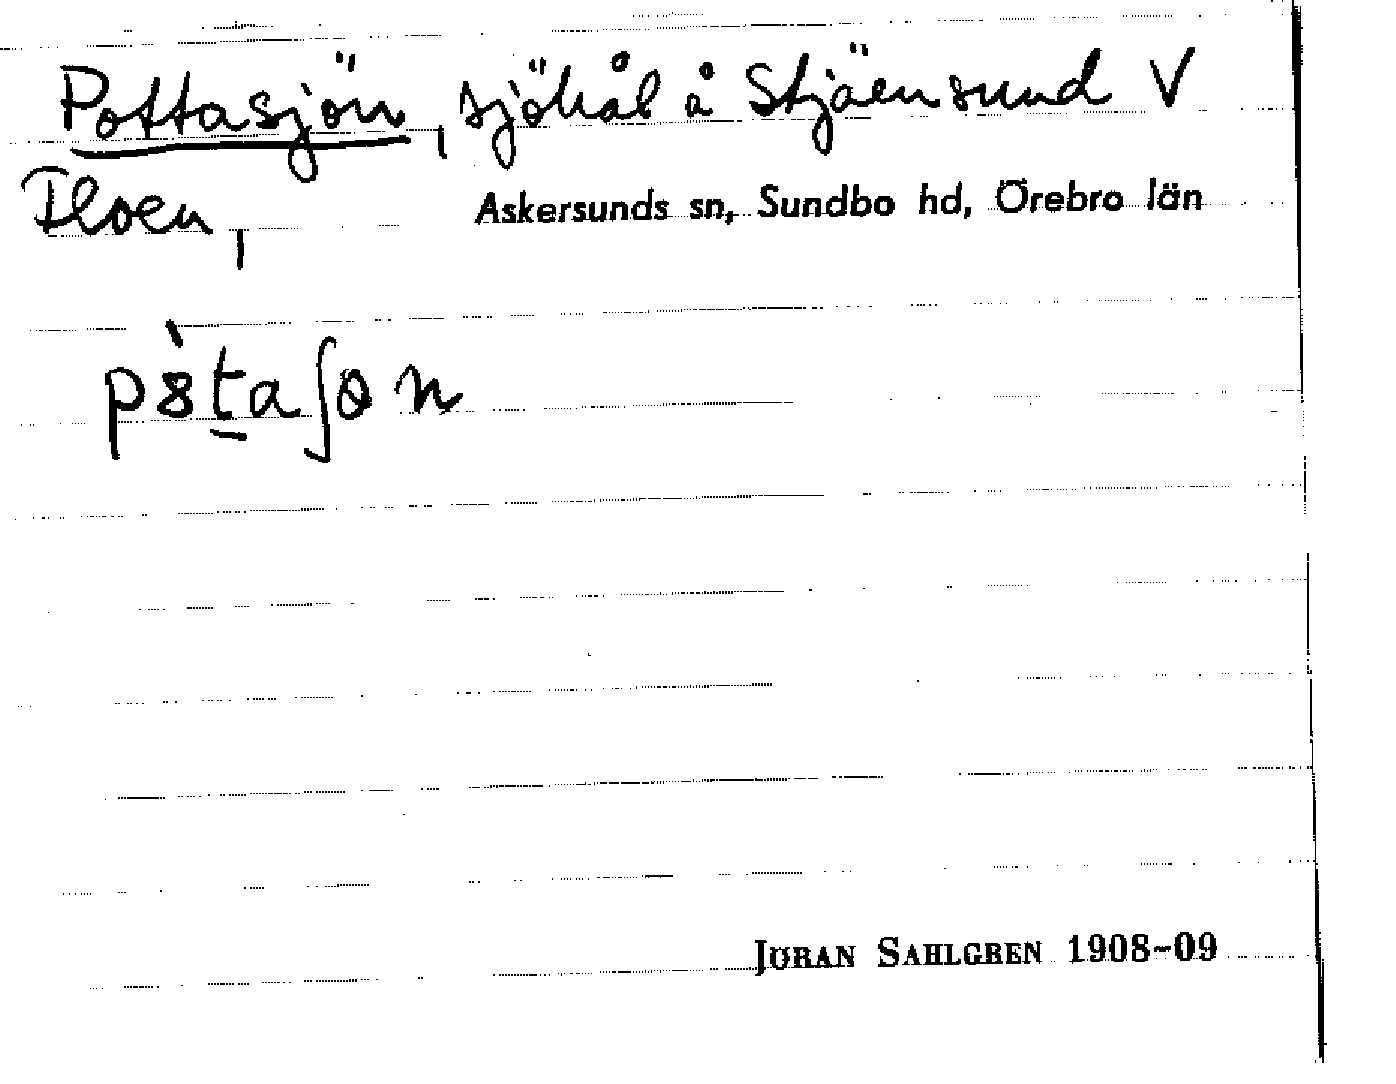 Pottasjön, sjöhål å Stjärnsund V
Askersunds sn, Sundbo hd, Örebro län
JÖRAN SAHLGREN 1908-09